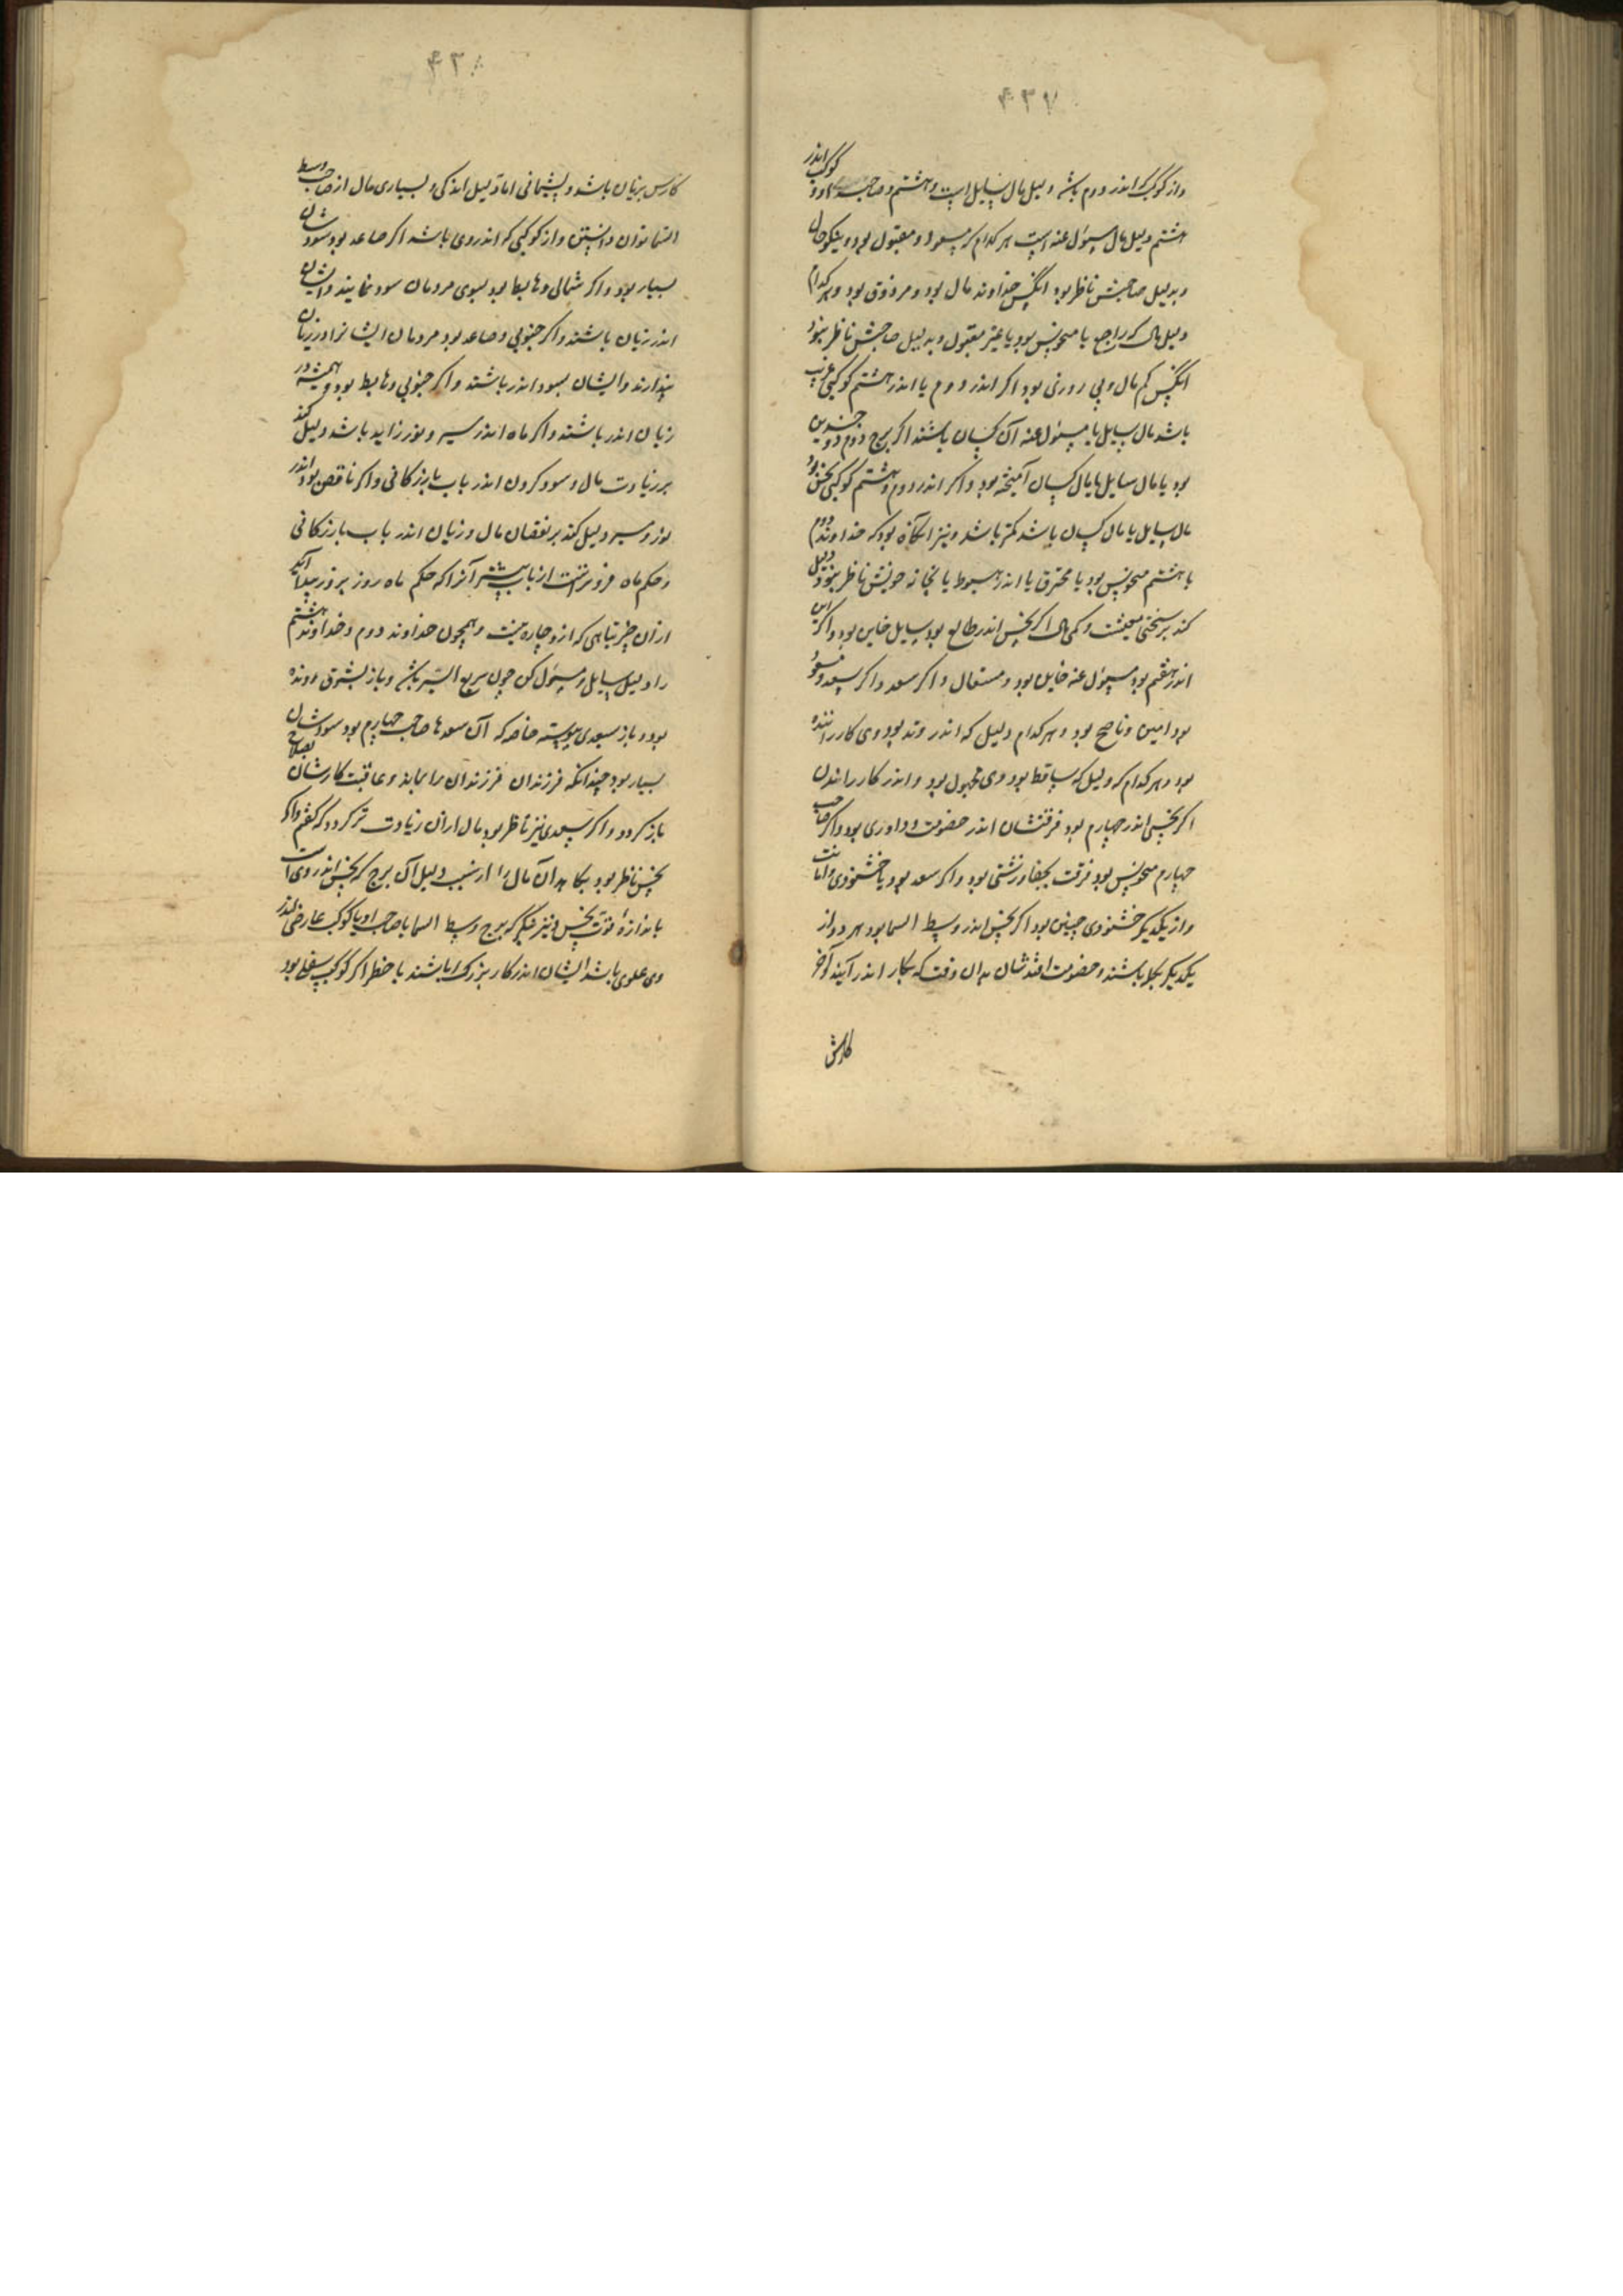 ۴۳۷
واز کوکب که اندر دوم باشد دلیل مال سایل است وهشتم وصاحب او و کوکب اندر
هشتم دلیل مال مسئول عنه است هر کدام که مسعود و مقبول بود و نیکو حال
وبدلیل صاحبش ناظر بود آنکس خداوند مال بود و مرزوق بود و هر کدام
دلیل مال که راجع یا منحوس بود یا غیر مقبول وبدلیل صاحبش ناظر نبود
آنکس کم مال و بی روزی بود اگر اندر دوم یا اندر هشتم کوکبی غریب
باشد مال سایل یا مسئول عنه آن کسان باشند اگر برج دوم ذو جسدین
بود یا مال سایل با مال کسان آمیخته بود و اگر اندر دوم و هشتم کوکبی نحس بود
مال سایل یا مال کسان باشد کمتر باشد ونیز آنگاه بود که خداوند دوم
یا هشتم منحوس بود یا محترق یا اندر هبوط یا بخانه خویش ناظر نبود دلیل
کند بر سختی معیشت و کمی مال اگر نحس اندر طالع بود سایل خاین بود و اگر این
اندر هفتم بود مسئول عنه خاین بود و مستعال و اگر سعد و اگر سعد و مسعود
بود امین و ناصح بود و هر کدام دلیل که اندر وتد بود وی کار راننده
بود و هر کدام که دلیل که ساقط بود وی مجهول بود و اندر کار راندن
اگر نحسی اندر چهارم بود فرقتشان اندر خصومت و داوری بود و اگر صاحب
چهارم منحوس بود فرقت بجفا و زشتی بود و اگر سعد بود با خشنودی و امانت
واز یکدیگر خشنودی چنین بود اگر نحس اندر وسط السما بود هر دو از
یکدیگر بگله باشند و خصومت افتدشان بدان وقت که بکار اندر آیند و آخر
کارش
۴۳۸
کارش بزیان باشد و پشیمانی اما دلیل اندکی و بسیاری مال از صاحب وسط
السما توان دانستن و از کوکبی که اندر وی باشد اگر صاعد بود سودشان
بسیار بود و اگر شمالی و هابط بود بسوی مردمان سود نمایند و ایشان
اندر زیان باشند و اگر جنوبی و صاعد بود مردمان ایشانرا در زیان
پندارند و ایشان بسود اندر باشند و اگر جنوبی و هابط بود همیشه در
زیان اندر باشند و اگر ماه اندر سیر و نور زاید باشد دلیل کند
بر زیادت مال و سود کردن اندر باب بازرگانی و اگر ناقص بود اندر
نور و سیر دلیل کند بر نقصان مال و زیان اندر باب بازرگانی
وحکم ماه فزونترست از باب پیشتر آنرا که حکم ماه روز بروز پیدا آید
از آن چیزها هی که ازو چاره نیست و همچون خداوند دوم و خداوند هشتم
را دلیل سایل و مسئول کن چون سریع السیر باشد و باز بشوق رونده
بود و باز بسعدی پیوسته خاصه که آن سعدها صاحب چهارم بود سودشان
بسیار بود چندانکه فرزندان فرزندان را بماند و عاقبت کارشان بصلاح
باز گردد و اگر سعدی نیز ناظر بود مال از آن زیادت تر گردد که گفتم و اگر
نحس ناظر بود بکاهد آن مال را از سبب دلیل آن برج که نحس اندر وی است
باندازه قوت نحس و نیز بنگر که برج وسط السما با صاحب او یا کوکب عارضی اندر
وی علوی باشد ایشان اندر کار بزرگ باشند با خطر اگر کوکب سفلی بود